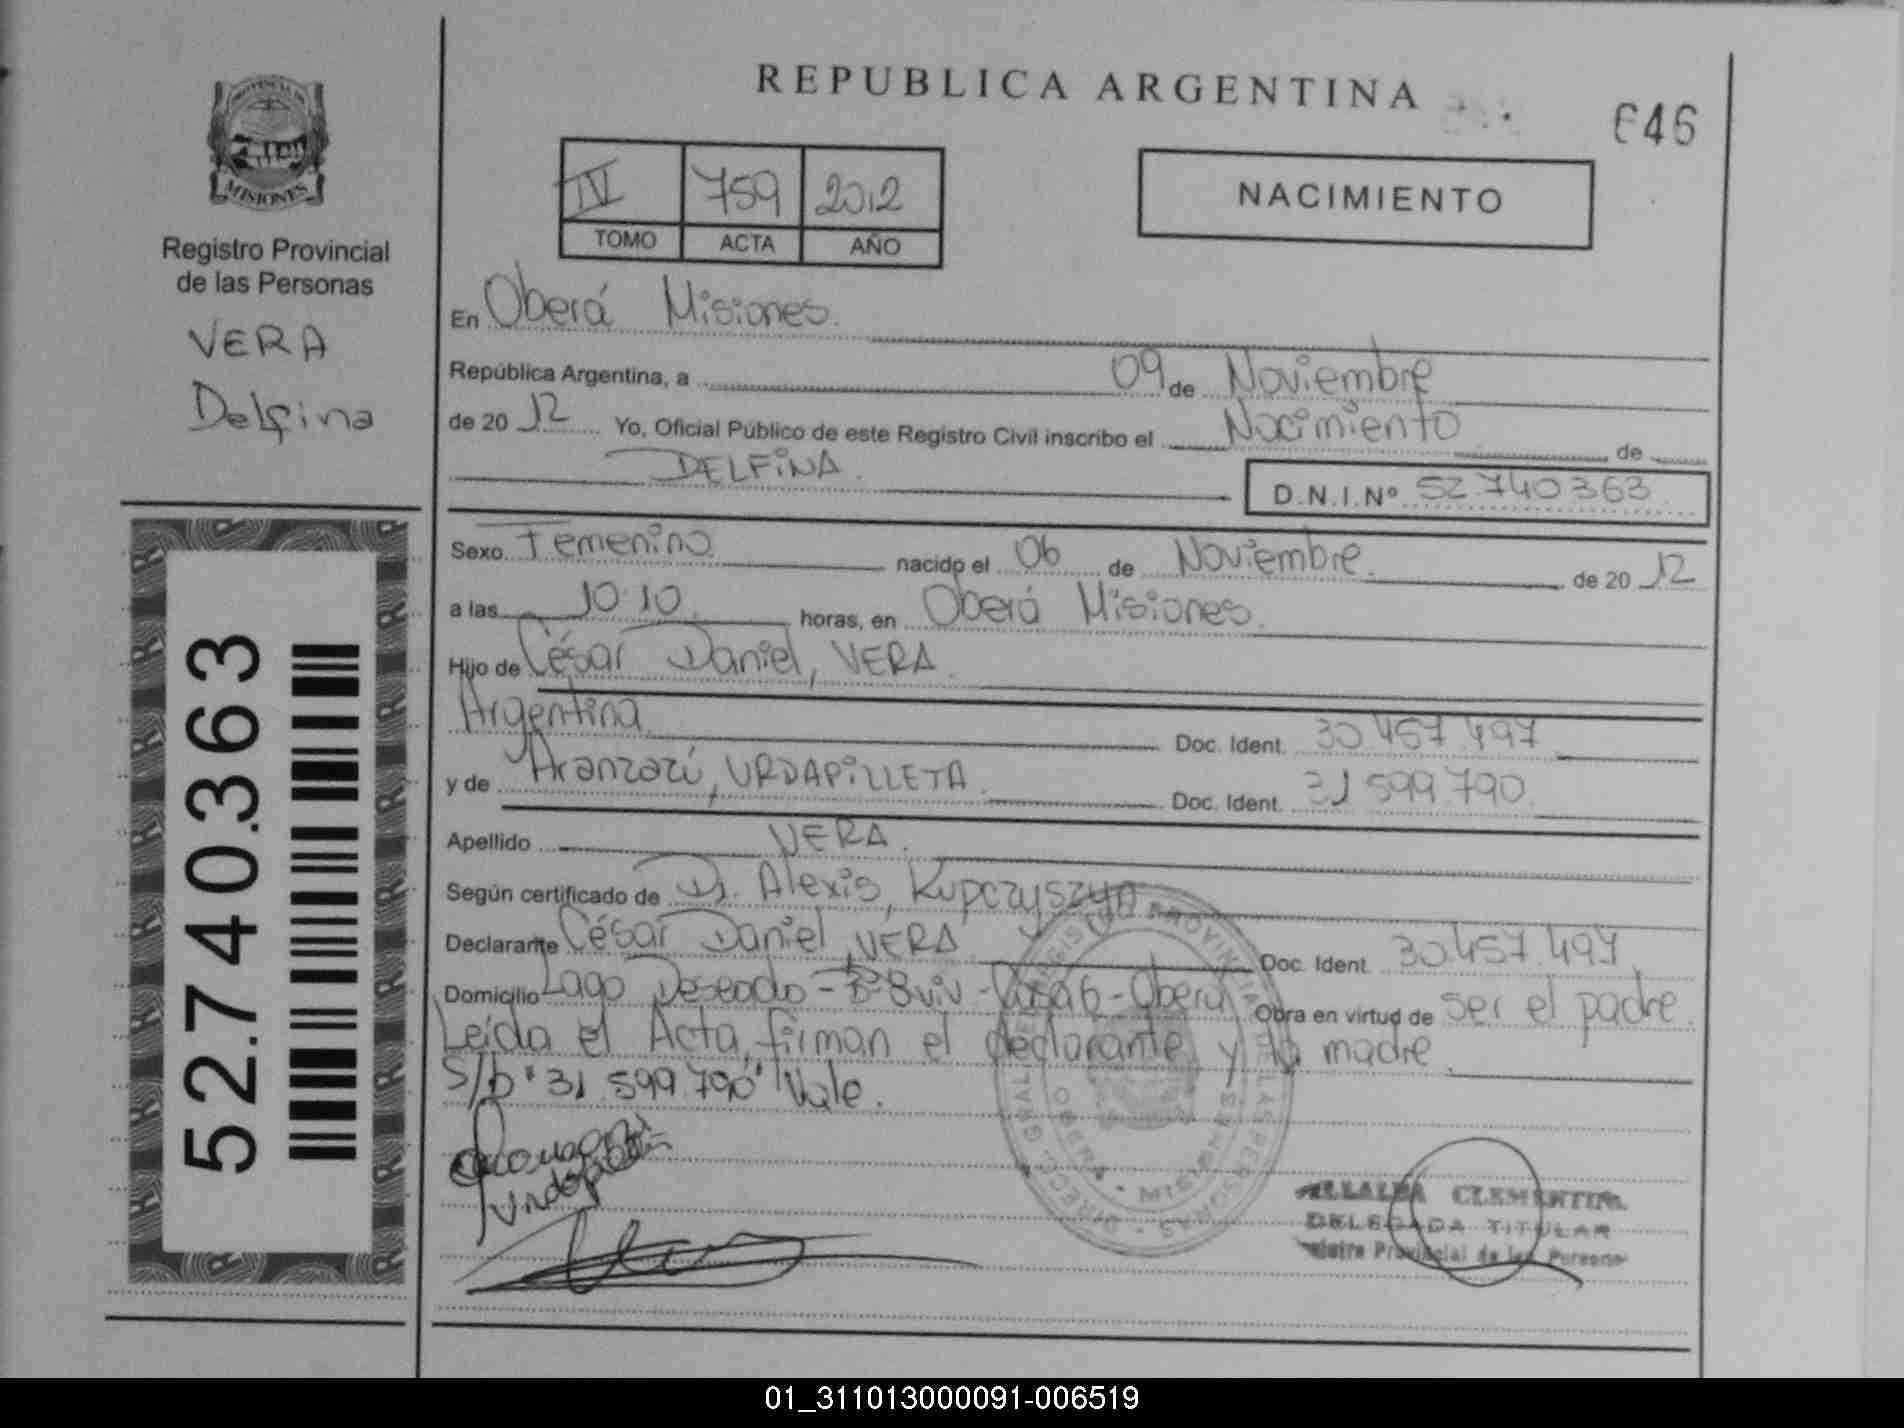 REPUBLICA ARGENTINA
646
PROVINCIA DE
MISIONES
Registro Provincial
de las Personas
VERA
Delfina
52.740.363
IV 759 2012
TOMO ACTA AÑO
NACIMIENTO
En Oberá Misiones.
República Argentina, a 09 de Noviembre
de 20 12 Yo, Oficial Público de este Registro Civil inscribo el Nacimiento de
DELFINA. D.N.I.Nº 52.740.363
Sexo Femenino nacido el 06 de Noviembre. de 20 12
a las 10:10. horas, en Oberá Misiones.
Hijo de César Daniel, VERA.
Argentina Doc. Ident. 30.457.497
y de Aranzazú, URDAPILLETA. Doc. Ident. 31.599.790.
Apellido VERA.
Según certificado de Dr. Alexis, Kupczyszyn
Declarante César Daniel, VERA Doc. Ident. 30.457.497,
Domicilio Lago Deseado - B° 8 viv - Casa 6 - Oberá Obra en virtud de ser el padre.
Leída el Acta, firman el declarante y la madre.
S/b "31.599.790" Vale.
DIRECC. GRAL. DEL REGISTRO PROVINCIAL DE LAS PERSONAS
OBERA - MISIONES
VILLALBA CLEMENTINA
DELEGADA TITULAR
Registro Provincial de las Personas
01_311013000091-006519